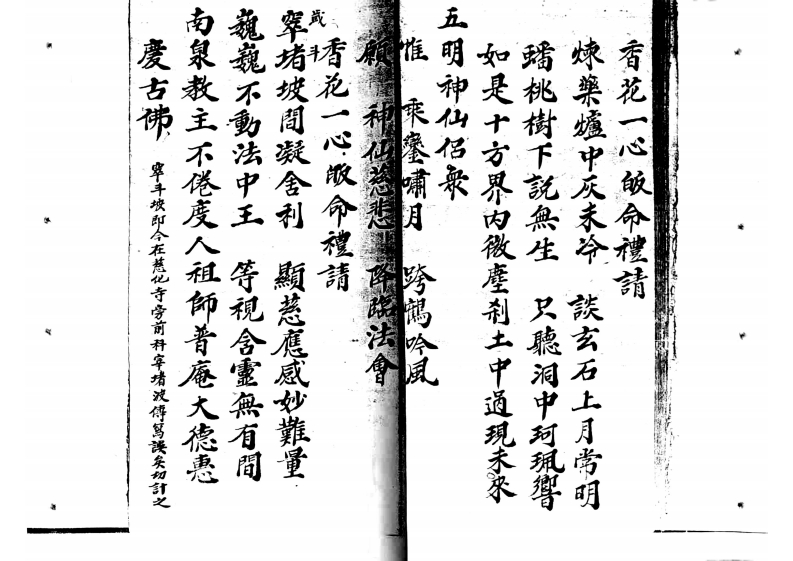 香花一心皈命禮請
煉藥爐中灰未冷 談玄石上月常明
蟠桃樹下説無生 只聽洞中珂珮響
如是十方界内微塵刹土中過現未來
五明神仙侣衆
惟 乘鑾嘯月 跨鶴吟風
願 神仙慈悲 降臨法會
香花一心皈命禮請
窣堵坡間凝舍利 顯慈應感妙難量
或斗
巍巍不動法中王 等視含靈無有間
南泉教主不倦度人祖師普庵大德惠
慶古佛
窣斗坡即今在慈化寺旁前科窣堵波傳寫誤矣切計之